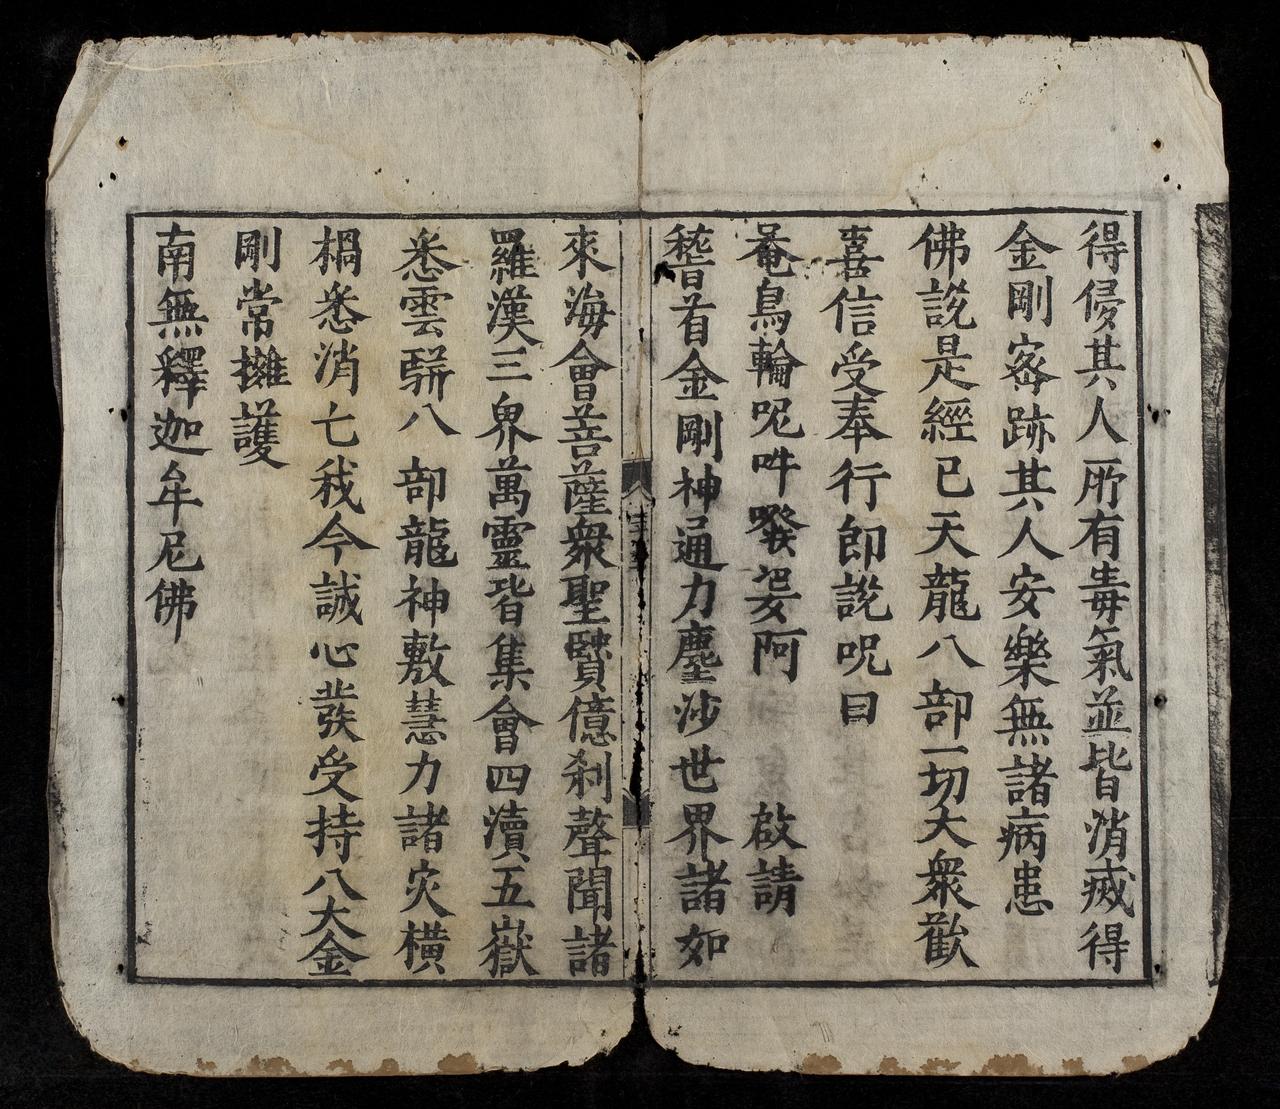 得侵其人所有毒氣並皆消滅得
金剛密跡其人安樂無諸病患
佛說是經已天龍八部一切大衆歡
喜信受奉行即說呪曰
菴烏輪呢吽㗶㜸阿　　啟請
稽首金剛神通力塵沙世界諸如
來海會菩薩衆聖賢億刹聲聞諸
羅漢三界萬靈皆集會四瀆五嶽
悉雲駢八部龍神敷慧力諸灾橫
禍悉消亡我今誠心發受持八大金
剛常擁護
南無釋迦牟尼佛